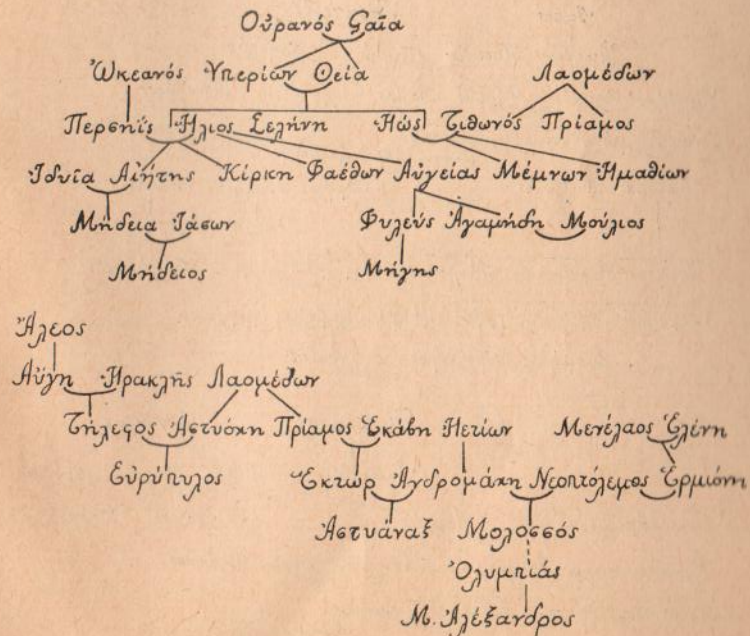 Οὐρανός Γαῖα
Ὠκεανός Ὑπερίων Θεία Λαομέδων
Περσηΐς Ἥλιος Σελήνη Ἠώς Τιθωνός Πρίαμος
Ἰδυῖα Αἰήτης Κίρκη Φαέθων Αὐγείας Μέμνων Ἠμαθίων
Μήδεια Ἰάσων Φυλεύς Ἀγαμήδη Μούλιος
Μήδειος Μέγης
Ἄλεος
Αὔγη Ἡρακλῆς Λαομέδων
Τήλεφος Ἀστυόχη Πρίαμος Ἑκάβη Ἠετίων Μενέλαος Ἑλένη
Εὐρύπυλος Ἕκτωρ Ἀνδρομάχη Νεοπτόλεμος Ἑρμιόνη
Ἀστυάναξ Μολοσσός
Ὀλυμπιάς
Μ. Ἀλέξανδρος